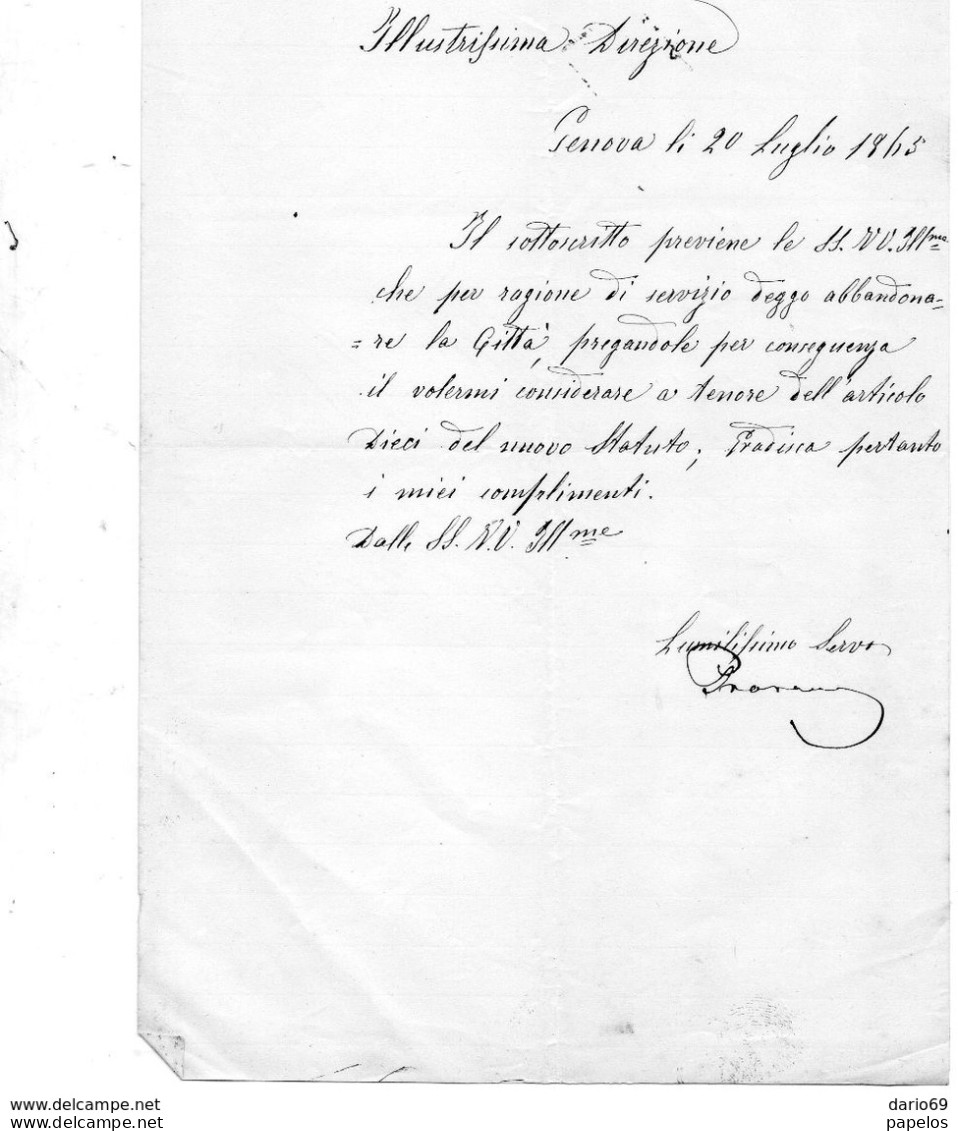 Illustrissima Direzione
Genova li 20 Luglio 1865
Il sottoscritto previene le SS. VV. Illme
che per ragione di servizio deggo abbandona=
=re la Città, pregandole per conseguenza
il volermi considerare a tenore dell'articolo
Dieci del nuovo Statuto; Gradisca pertanto
i miei complimenti.
Dalle SS. V.V. Illme
L'umilissimo Servo
dario69
papelos